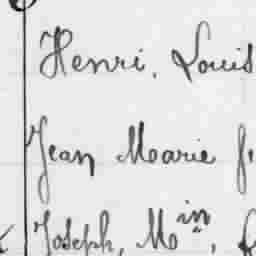 Henri, Louis
Jean Marie
Joseph, M^in,